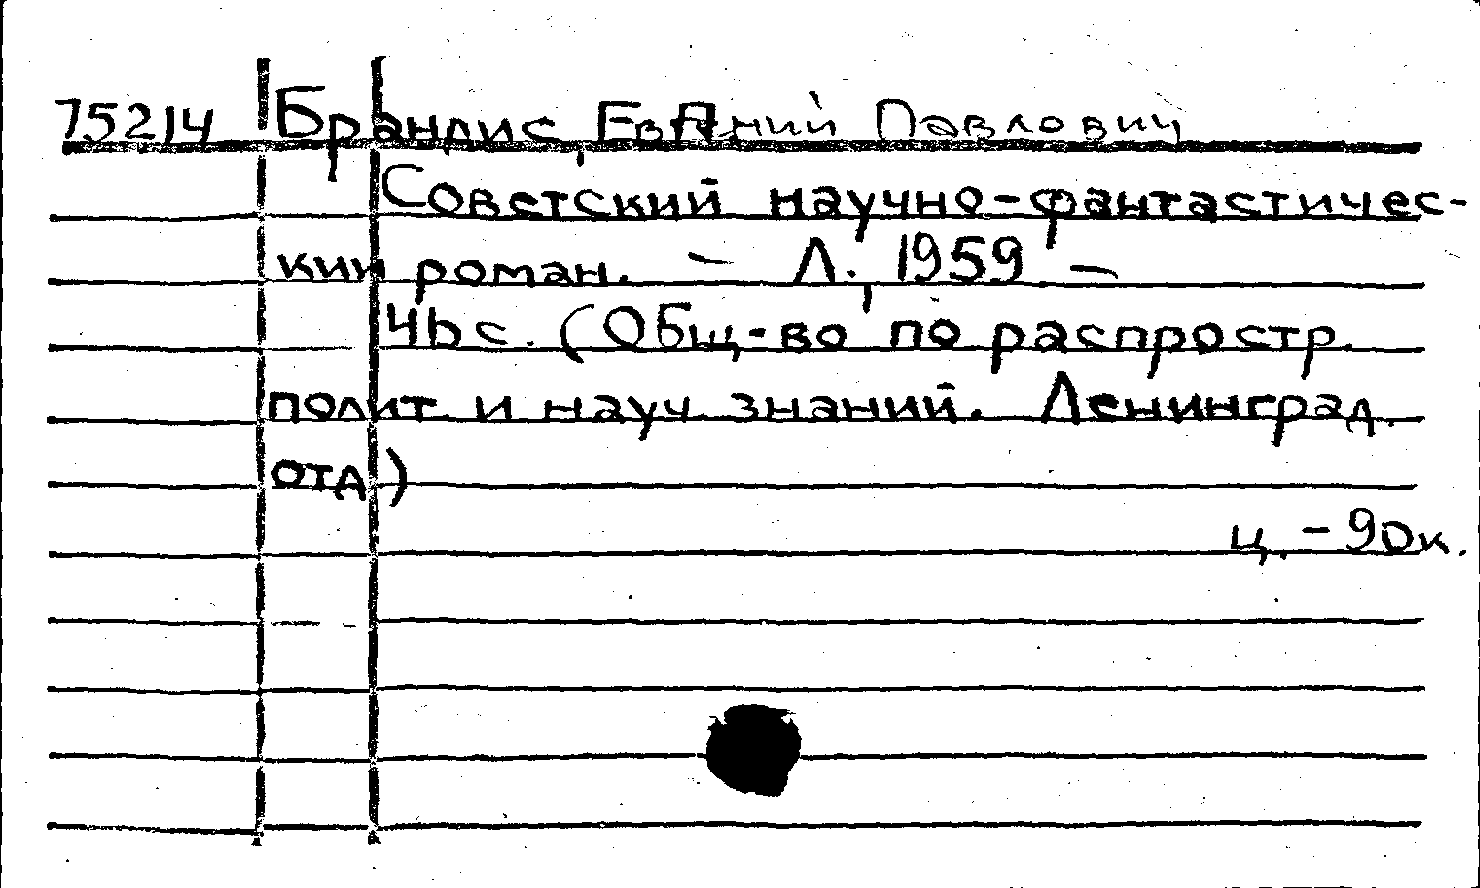 75214 Брандис, Евгений Павлович
Советский научно-фантастичес-
кий роман. - Л., 1959 -
46 с. (Общ-во по распростр.
полит. и науч. знаний. Ленинград.
отд)
ц. - 90к.